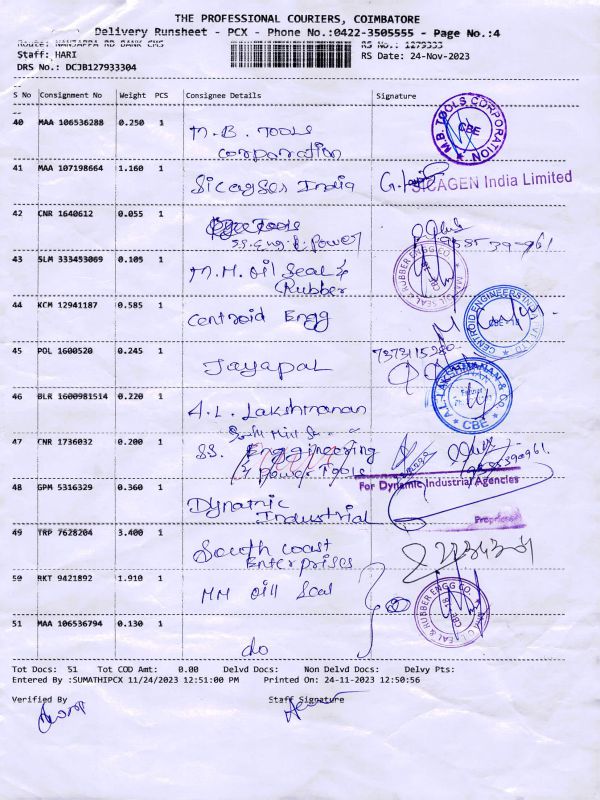 THE PROFESSIONAL COURIERS, COIMBATORE
Delivery Runsheet - PCX - Phone No.:0422-3505555 - Page No.:4
Route: NANJAPPA RD BANK CMS RS No.: 1279333
Staff: HARI RS Date: 24-Nov-2023
DRS No.: DCJB127933304
S No Consignment No Weight PCS Consignee Details Signature
40 MAA 106536288 0.250 1 M.B. Tools
corporation
M.B. TOOLS CORPORATION
CBE
41 MAA 107198664 1.160 1 Sicagses India
SICAGEN India Limited
42 CNR 1640612 0.055 1
SS. Eng. & Power
9585390961
43 SLM 333453069 0.105 1 M.M. Oil Seal &
Rubber
OIL SEAL & RUBBER ENGG CO.
44 KCM 12941187 0.585 1 Centroid Engg
CENTROID ENGINEERS
CBE - 18
45 POL 1600520 0.245 1 Jayapal
46 BLR 1600981514 0.220 1 A.L. Lakshmanan
A.L. LAKSHMANAN & CO.
CBE
47 CNR 1736032 0.200 1 SS. Enggineering
& Power Tools
9585390961
48 GPM 5316329 0.360 1 Dynamic
Industrial
For Dynamic Industrial Agencies
Proprietor
49 TRP 7628204 3.400 1 South coast
Enterprises
50 RKT 9421892 1.910 1 MM Oill Seal
OIL SEAL & RUBBER ENGG CO.
51 MAA 106536794 0.130 1 do
Tot Docs: 51 Tot COD Amt: 0.00 Delvd Docs: Non Delvd Docs: Delvy Pts:
Entered By :SUMATHIPCX 11/24/2023 12:51:00 PM Printed On: 24-11-2023 12:50:56
Verified By Staff Signature